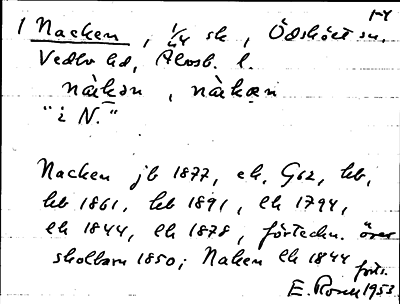 1-4
1 Nacken, 1/4 sk, Ödskölt sn,
Vedbo hd, Älvsb. l.
nàkən, nàkæn
"i N."
Nacken jb 1877, ek, G62, hb,
hb 1861, hb 1891, ek 1794,
ek 1844, ek 1878, förteckn. över
skolbarn 1850; Naken ek 1844
forts.
E. Rosen 1953